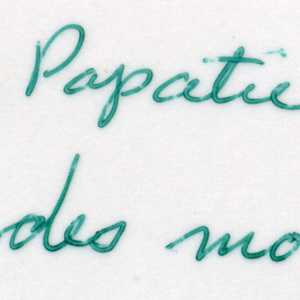 Papatie
des mo